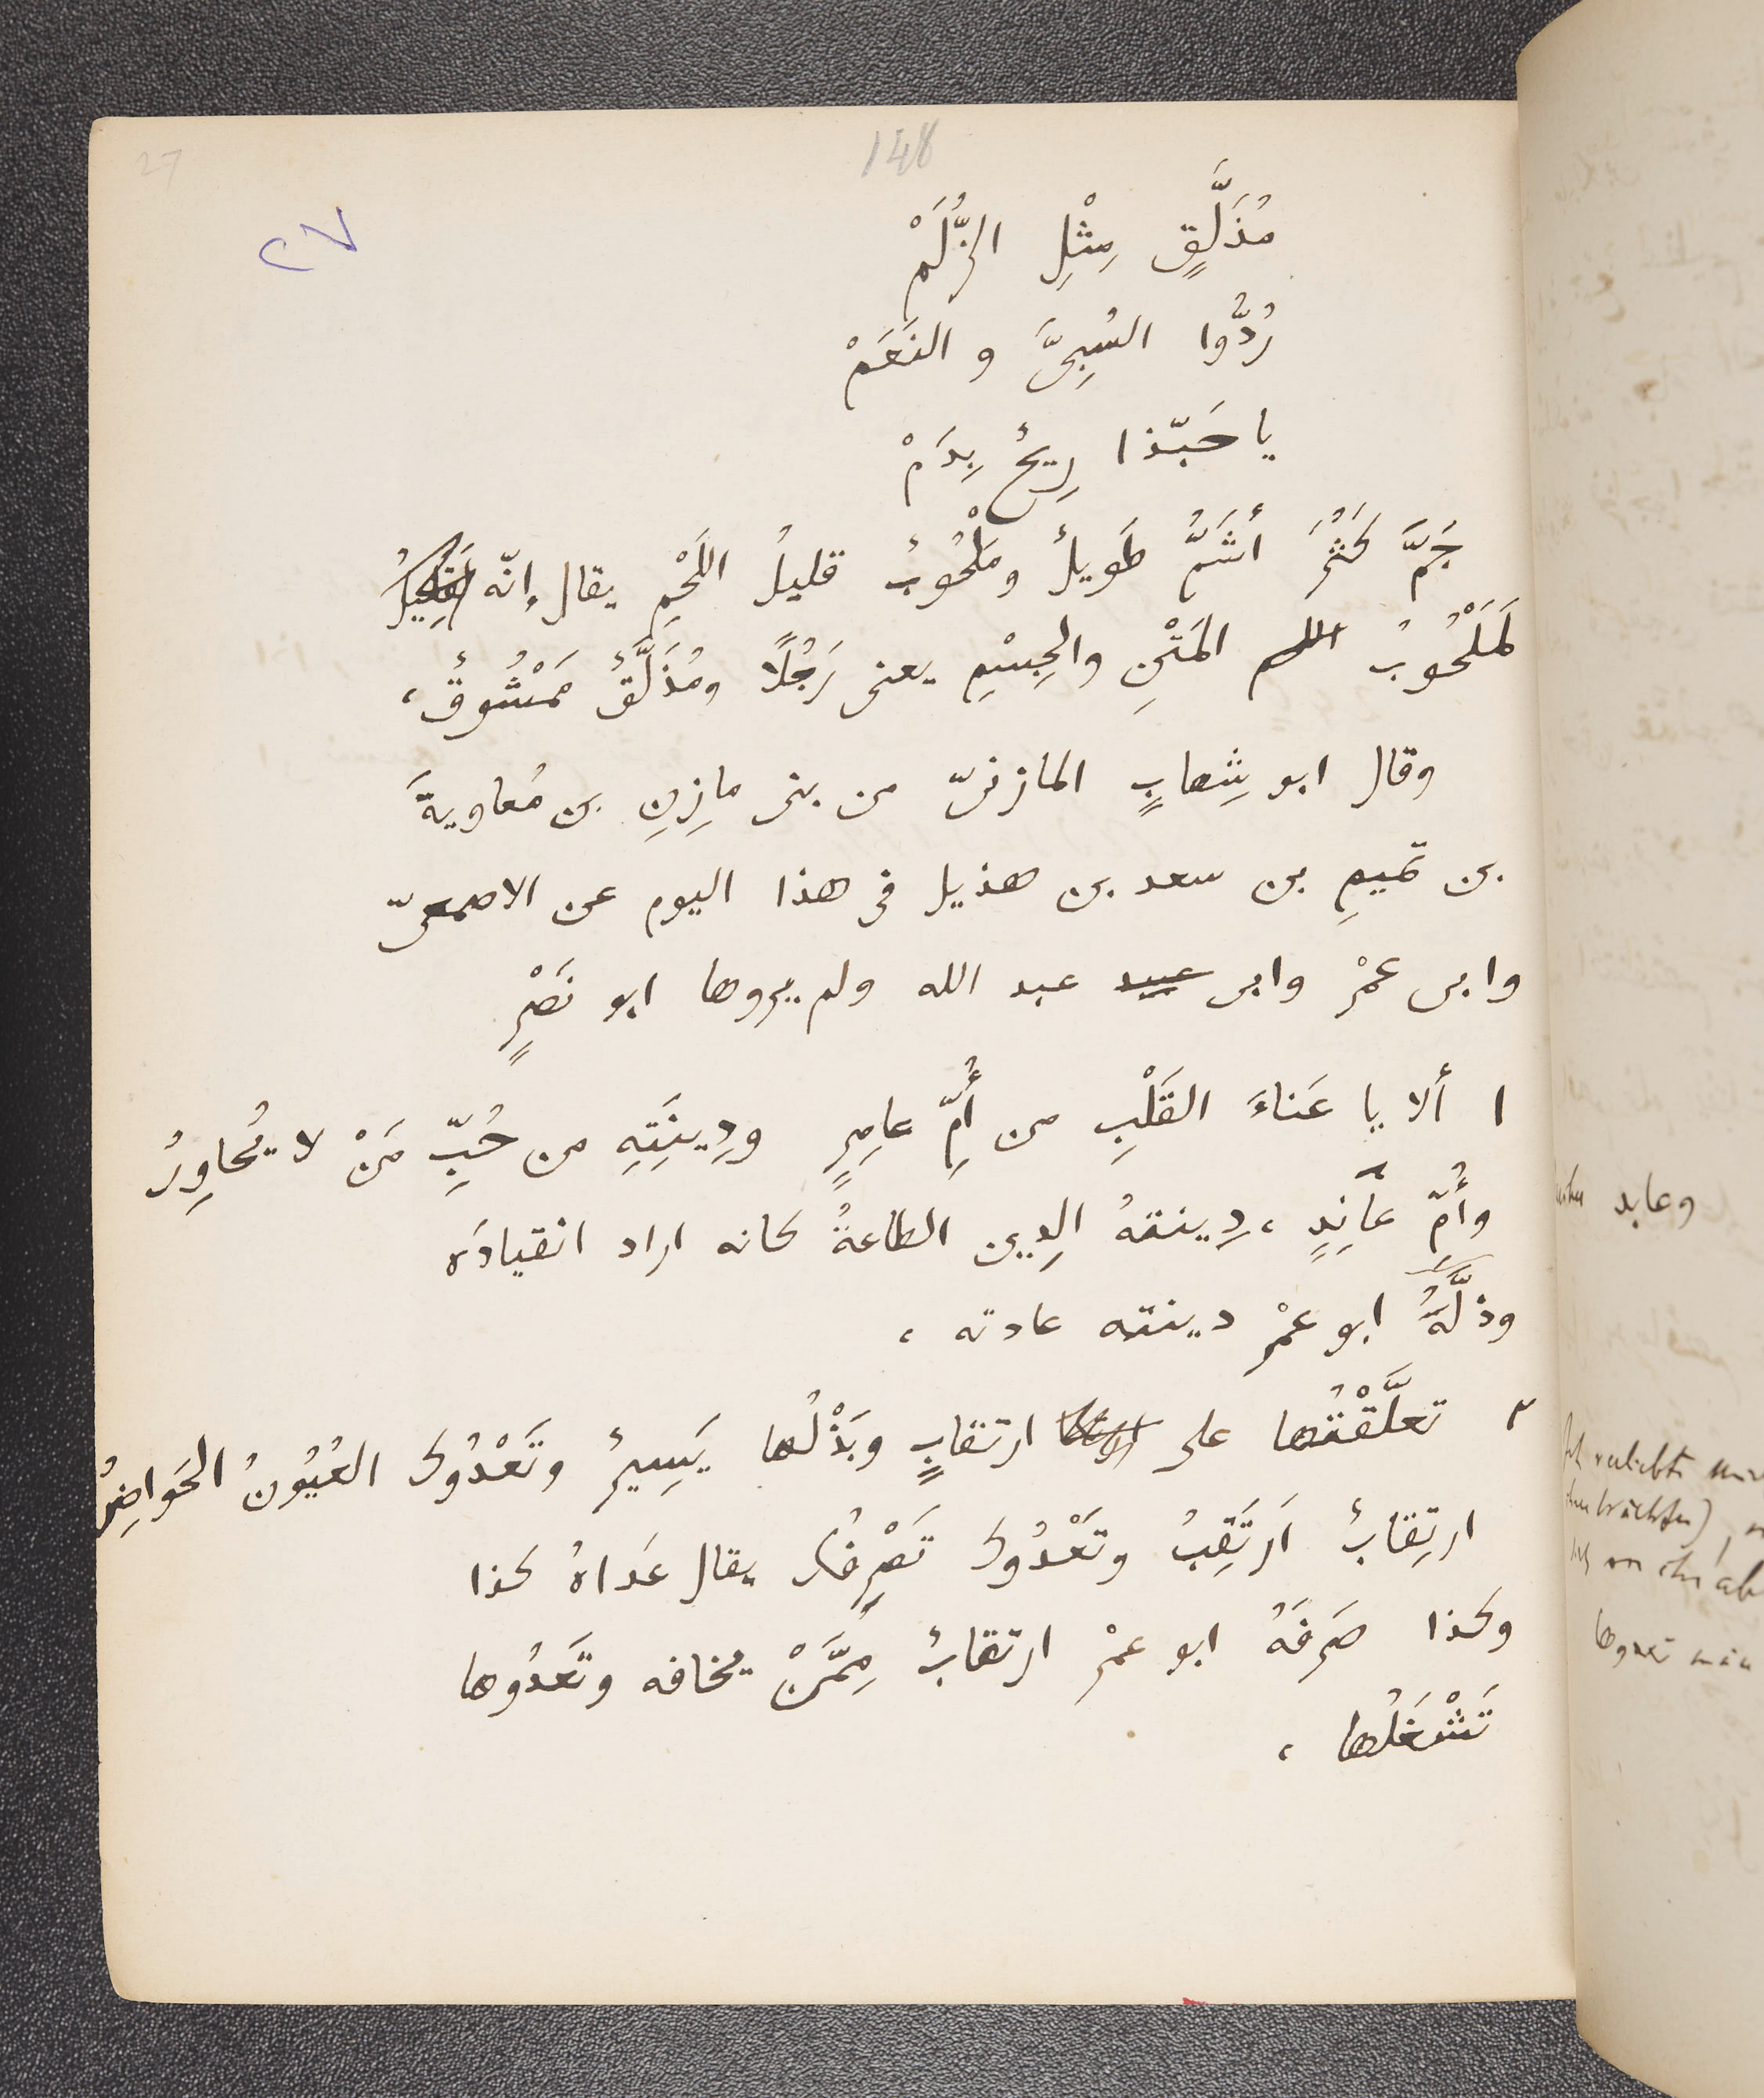 27
148
٢٧
مُذَلَّقٍ مِثْلِ الزُّلَمْ
رُدُّوا السُبِىَّ و النَعَمْ
يا حَبّذا رِيحُ بِدَمْ
جَمَّ كَثُرَ أَشَمُّ طَوِيلٌ ومَلْحُوبٌ قليلُ اللَحْمِ يقال إنّه
لَمَلْحُوبُ المَتْنِ والجِسْمِ يعنى رَجُلًا ومُذَلَّقٌ مَمْشُوقٌ ،
وقال ابو شِهابٍ المازنىّ من بنى مازِنِ بن مُعاويةَ
بن تميمِ بن سعد بن هذيل فى هذا اليوم عن الاصمعىّ
وابى عمْرٍ وابى عبيد عبد الله ولم يروها ابو نَصْرٍ
١ ألا يا عَناءَ القَلْبِ من أُمِّ عامِرٍ ودِينَتِهِ من حُبِّ مَنْ لا يُحاوِرُ
وأُمِّ عائِذٍ ، دِينتهُ الدِين الطاعةُ كانه اراد انقيادَه
وذلَّهُ ابو عمْرٍ دينته عادته ،
٢ تعلَّقْتُها على ارتقابٍ وبَذْلُها يَسِيرٌ وتَعْدُوكَ العُيُونُ الحَواضِرُ
ارتِقابٌ اَرتَقِبُ وتَعْدُوكَ تَصْرِفُكَ يقال عَداهُ كذا
وكذا صَرفَهُ ابو عمْرٍ ارتقابٌ مِمَّنْ يخافه وتَعدُوها
تَشْغَلُها ،
وعابد